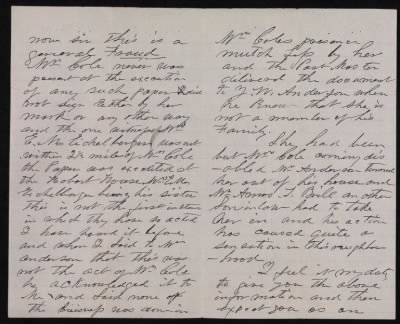 now sir this is a
general Fraud
Mrs Cole never was
present at the execution
of any such paper & did
not sign Either by her
mark or any other way
and the one witness Mrs
E. Eichelberger was not
within 2½ miles of Mrs Cole
the Paper was executed at
the House
Eichelberger being his sister
This is not the first instance
in which they have so acted
I have heard it before
and when I said to Mr
anderson that this was
not the act of Mrs Cole
he acknowledged it to
me and said none of
the buisness was done in
Mrs Coles presence
by her
and the Post Master
delivered the document
to J. W. Anderson when
he knew that she is
not a member of his
Family.
She had been
but Mrs Cole coming dis-
-abled Mr Anderson turned
her out of his house and
Mr Amos T. Bell another
Son in law had to take
her in and his action
has caused quite a
sensation in this neighbor-
-hood
I feel it my duty
to give you the above
information and then
expect you as an